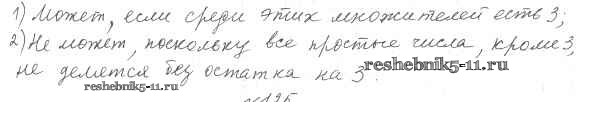 1) Может, если среди этих множителей есть 3;
2) Не может, поскольку все простые числа, кроме 3,
не делятся без остатка на 3.
reshebnik5-11.ru
reshebnik5-11.ru